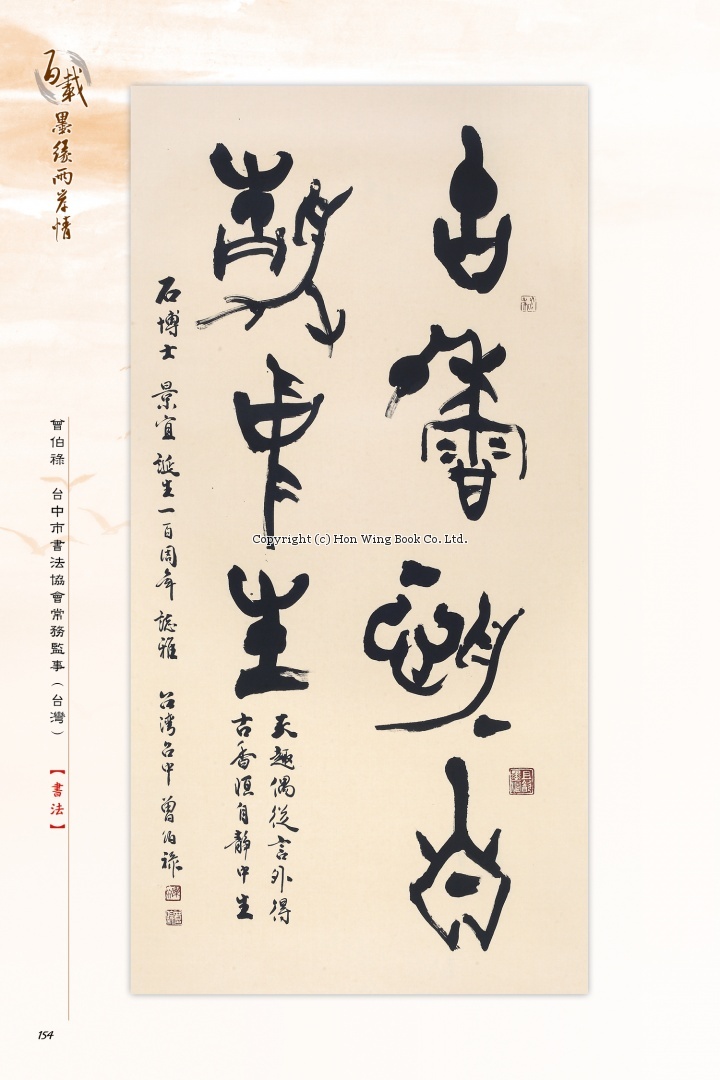 百載墨緣兩岸情
古香恆自
靜中生
天趣偶從言外得
古香恆自靜中生
石博士 景宜 誕生一百周年 誌雅 台灣台中 曾伯祿
曾伯祿 台中市書法協會常務監事（台灣）【書法】
Copyright (c) Hon Wing Book Co. Ltd.
154